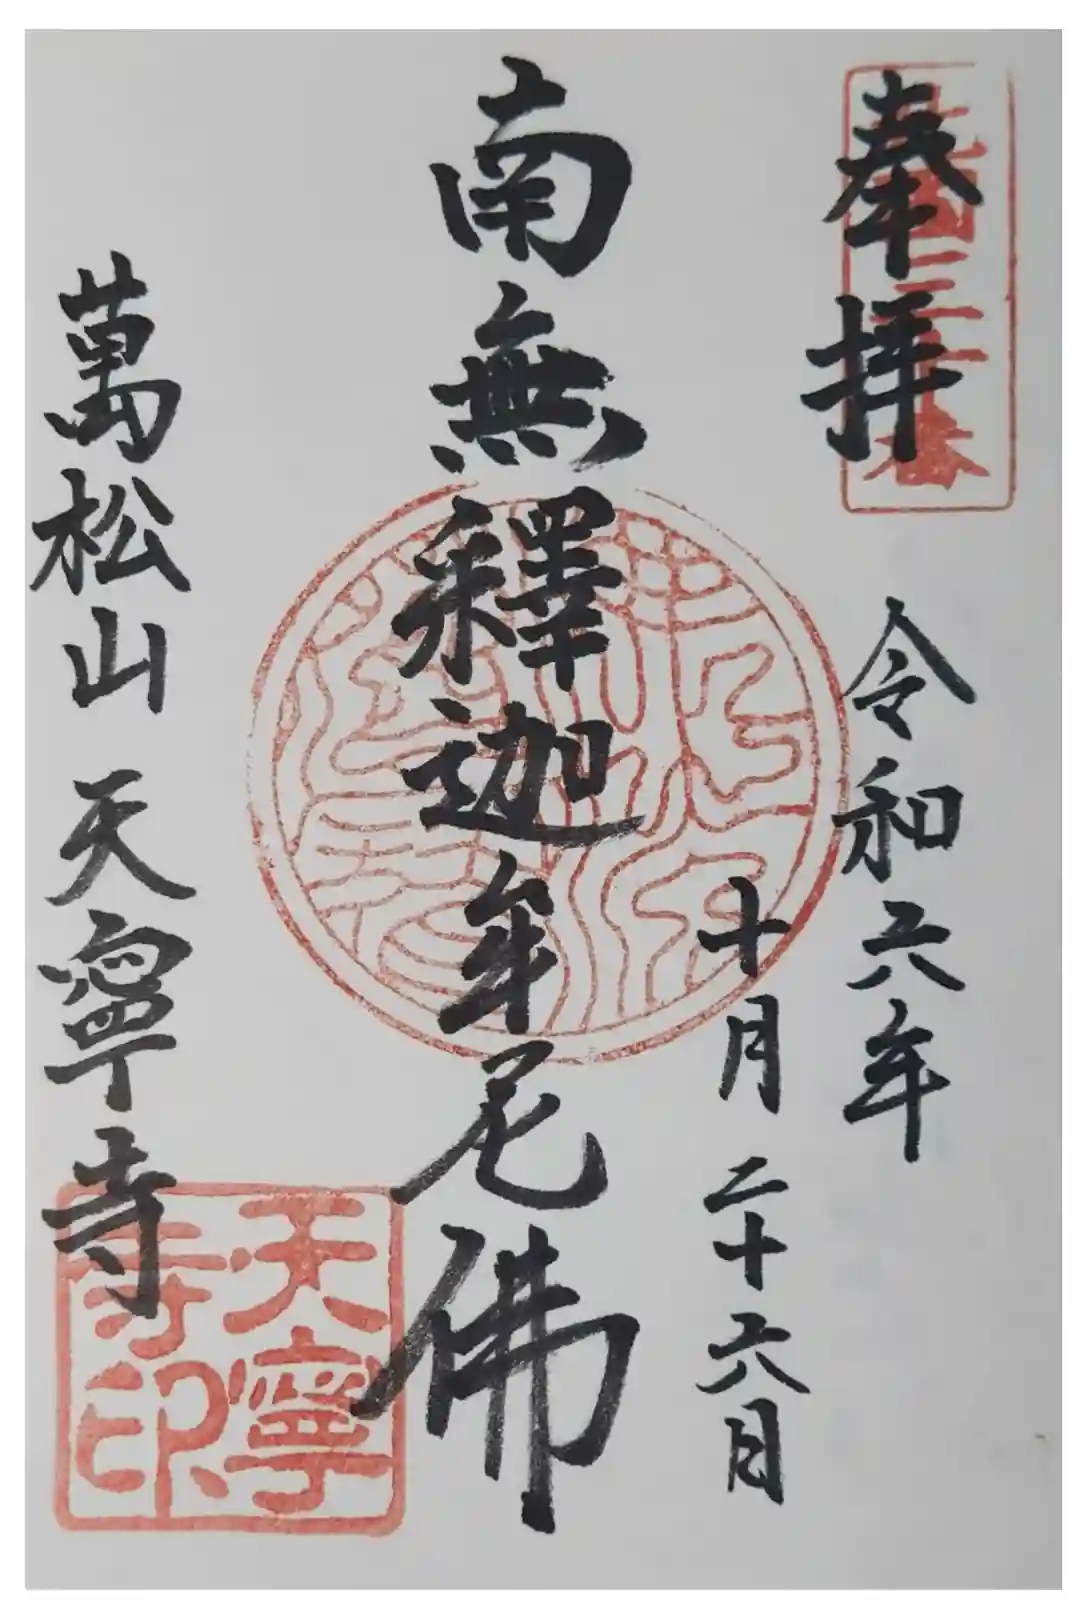 奉拝
令和六年
十月二十六日
南無釋迦牟尼佛
萬松山 天寧寺
天寧
寺印